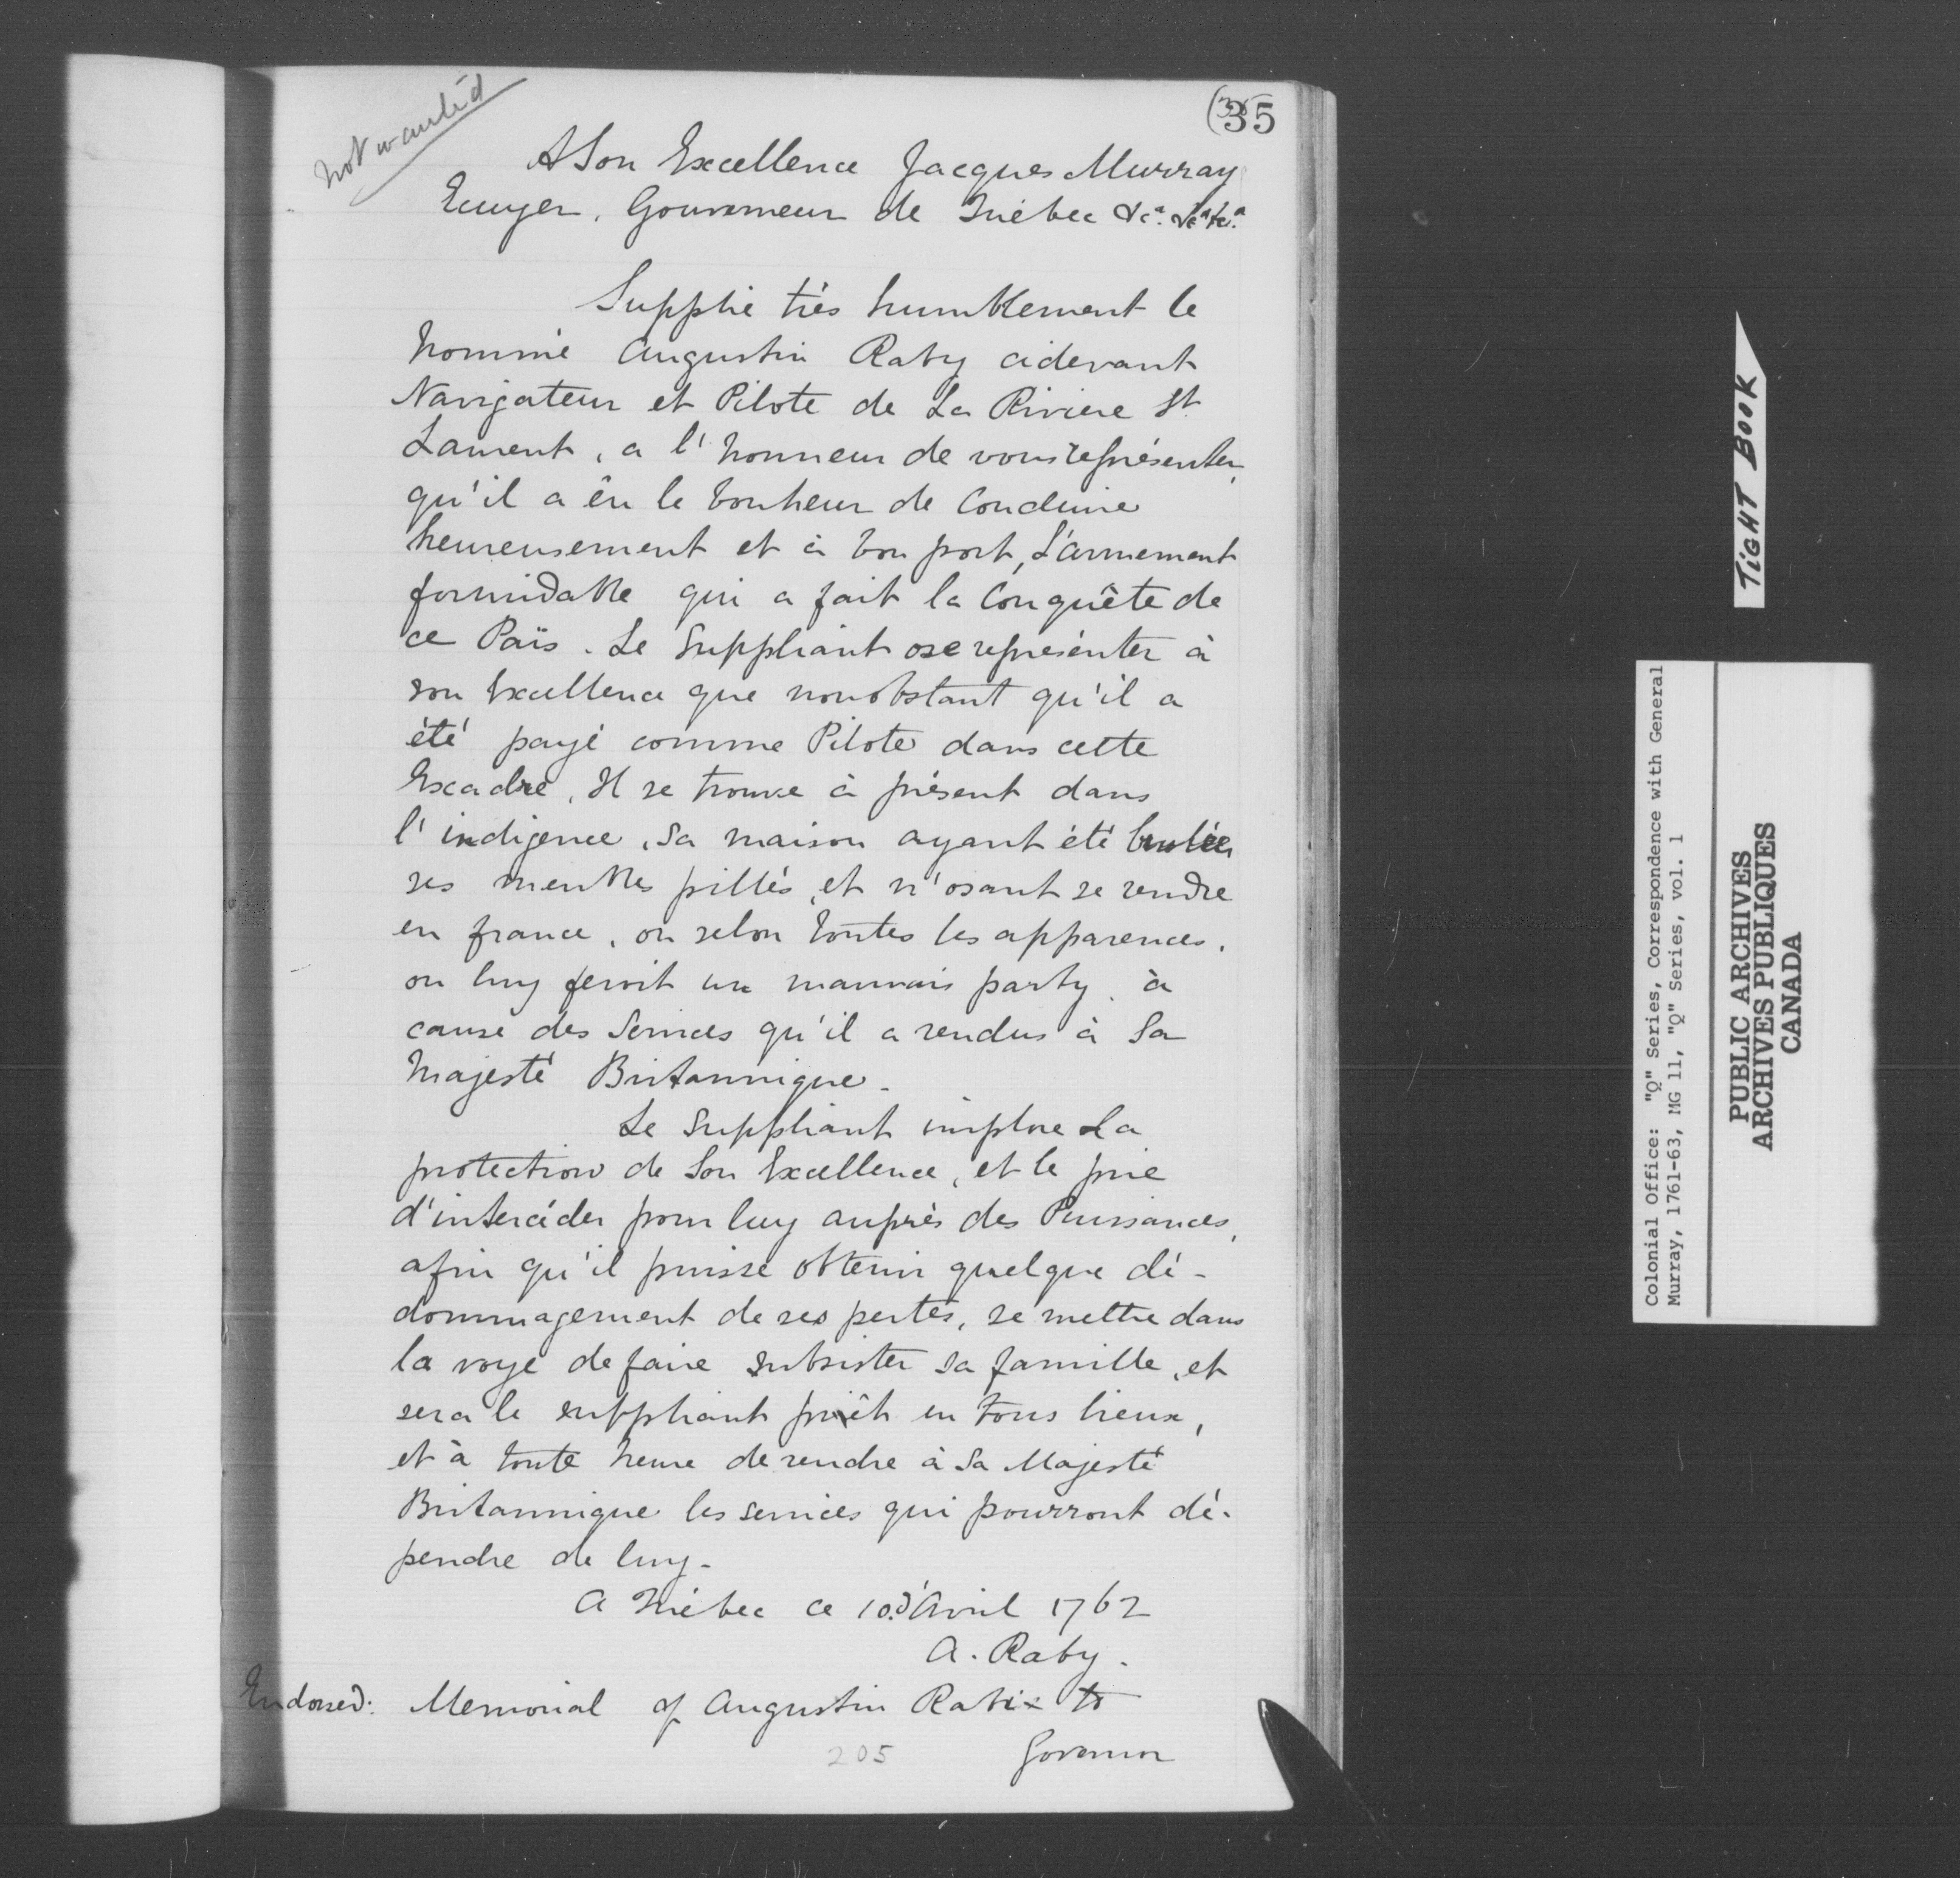 not wanted
35
A Son Excellence Jacques Murray
Ecuyer, Gouverneur de Québec &ca. &ca &ca.
Supplie trés humblement le
nommé Augustin Raby cidevant
Navigateur et Pilote de La Riviere St
Laurent, a l'honneur de vous représenter,
qu'il a êu le bonheur de Conduire
heureusement et à bon port, L'armement
formidable qui a fait la Conquête de
ce Païs. Le Suppliant ose représenter à
son Excellence que nonobstant qu'il a
été payé comme Pilote dans cette
Escadre, Il se trouve à présent dans
l'indigence, Sa maison ayant été brulée
ses meubles pillés, et n'osant se rendre
en france, ou selon toutes les apparences,
on luy feroit un mauvais party, à
cause des Services qu'il a rendus à Sa
Majesté Britannique.
Le Suppliant implore La
protection de Son Excellence, et le prie
d'intercéder pour luy auprès des Puissances,
afin qu'il puisse obtenir quelque dé-
dommagement de ses pertes, se mettre dans
la voye de faire subsister sa famille, et
sera le suppliant prêt en tous lieux,
et à toute heure de rendre à Sa Majesté
Britannique les services qui pourront dé-
pendre de luy.
A Québec ce 10. d'Avril 1762
A. Raby.
Endorsed: Memorial of Augustin Rabie to
Governor
205
TIGHT BOOK
Colonial Office: "Q" Series, Correspondence with General
Murray, 1761-63, MG 11, "Q" Series, vol. 1
PUBLIC ARCHIVES
ARCHIVES PUBLIQUES
CANADA